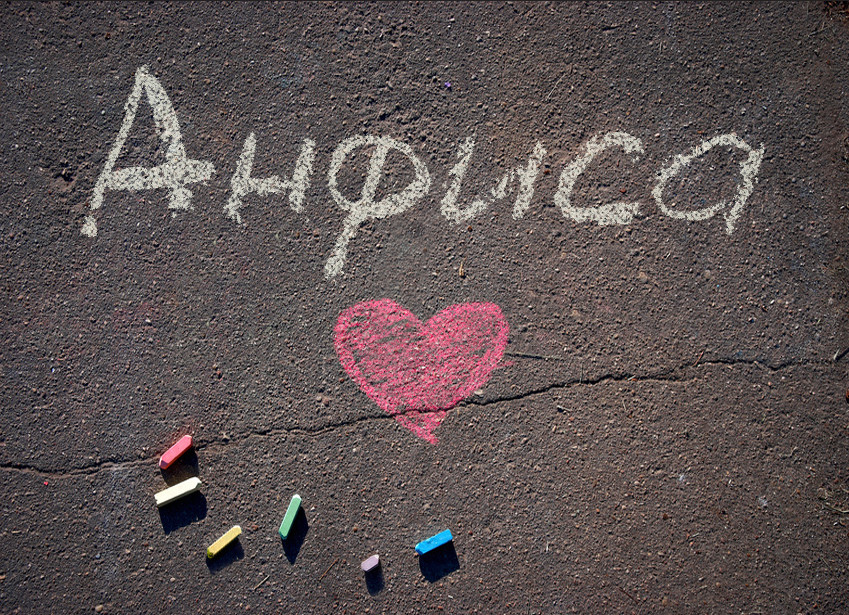 Анфиса